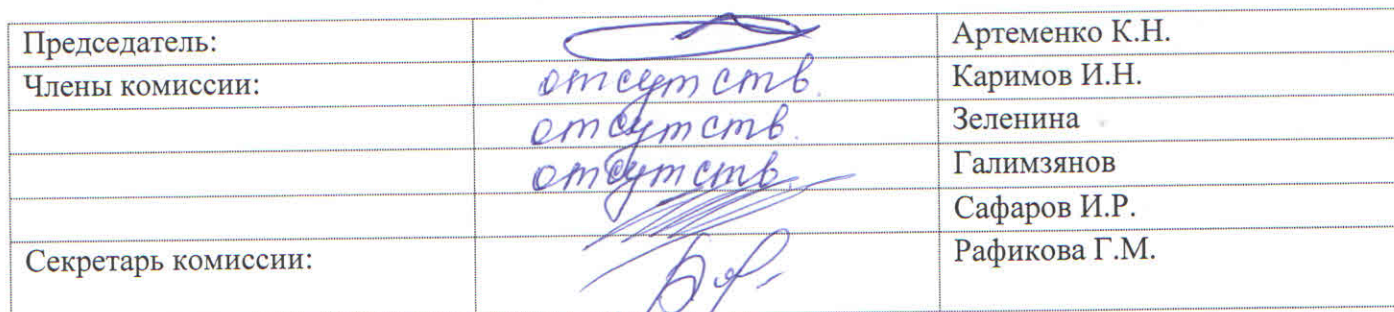 Председатель: Артеменко К.Н.
Члены комиссии: отсутств. Каримов И.Н.
отсутств. Зеленина
отсутств. Галимзянов
Сафаров И.Р.
Секретарь комиссии: Рафикова Г.М.